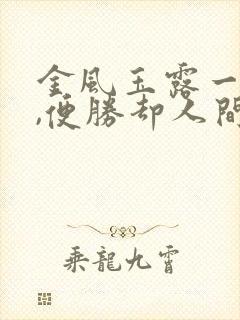 金風玉露一
,便勝却人間
乘龍九霄